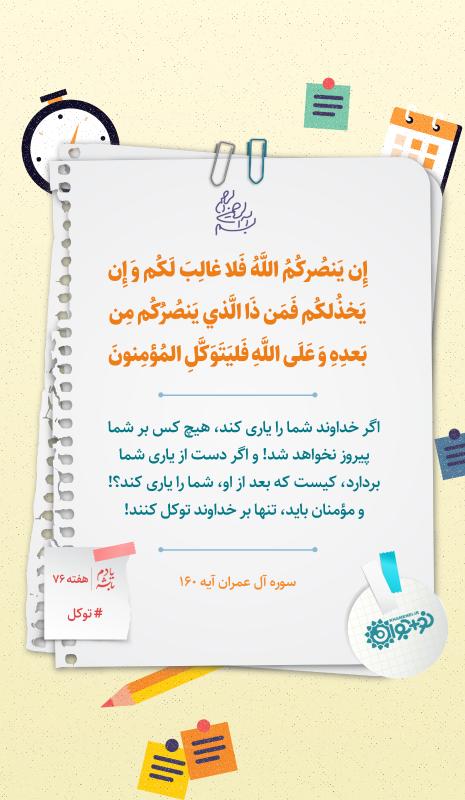 بسم الله الرحمن الرحیم
إِن يَنصُركُمُ اللَّهُ فَلا غالِبَ لَكُم وَ إِن
يَخذُلكُم فَمَن ذَا الَّذي يَنصُرُكُم مِن
بَعدِهِ وَ عَلَى اللَّهِ فَليَتَوَكَّلِ المُؤمِنونَ
اگر خداوند شما را یاری کند، هیچ کس بر شما
پیروز نخواهد شد! و اگر دست از یاری شما
بردارد، کیست که بعد از او، شما را یاری کند؟!
و مؤمنان باید، تنها بر خداوند توکل کنند!
سوره آل عمران آیه ۱۶۰
یادم باشه
هفته ۷۶
#توکل
KHAMENEI.IR
نوجوان